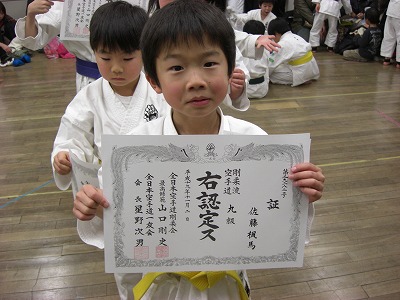 証
佐藤楓馬
剛柔流
空手道
九級
右認定ス
平成十九年十一月二日
全日本空手道剛柔会
最高師範 山口剛史
全日本空手道一友会
会長 星野次男